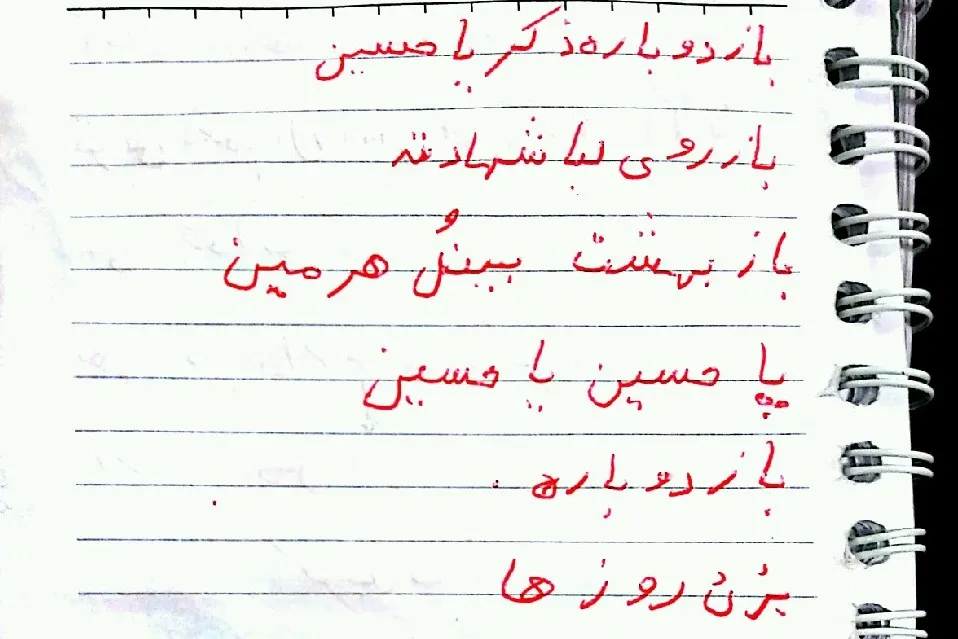 باز دوباره ذکر یا حسین
باز روی لبا شهادته
باز بهشت بینُل هرمین
یا حسین یا حسین
باز دوباره
روز ها